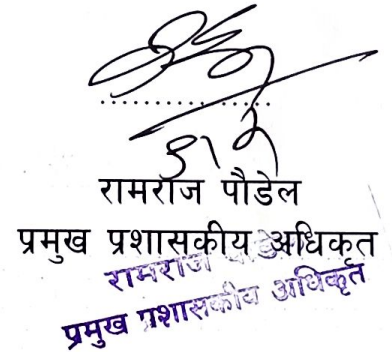 रामराज पौडेल
प्रमुख प्रशासकीय अधिकृत
रामराज
प्रमुख प्रशासकीय अधिकृत